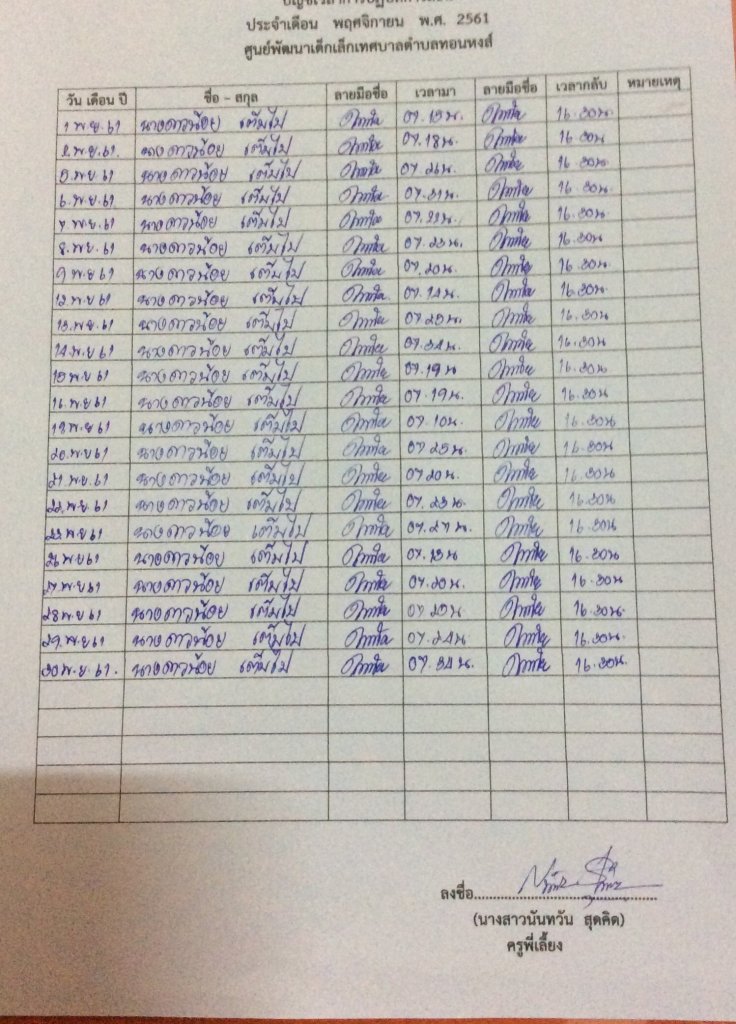 ประจำเดือน พฤศจิกายน พ.ศ. 2561
ศูนย์พัฒนาเด็กเล็กเทศบาลตำบลทอนหงส์
วัน เดือน ปี ชื่อ – สกุล ลายมือชื่อ เวลามา ลายมือชื่อ เวลากลับ หมายเหตุ
1 พ.ย. 61 นางดาวน้อย เติมไป 07.15น. 16.30น.
2.พ.ย.61. นางดาวน้อย เติมไป 07.18น. 16.30น
5.พ.ย.61 นางดาวน้อย เติมไป 07.26น. 16.30น
6.พ.ย.61 นางดาวน้อย เติมไป 07.31น. 16.30น.
7.พ.ย.61 นางดาวน้อย เติมไป 07.22น. 16.30น
8.พ.ย.61 นางดาวน้อย เติมไป 07.23น. 16.30น
9 พ.ย 61 นางดาวน้อย เติมไป 07.20น. 16.30น.
12.พ.ย 61 นางดาวน้อย เติมไป 07.14น. 16.30น.
13.พ.ย.61 นางดาวน้อย เติมไป 07.25น. 16.30น
14.พ.ย 61 นางดาวน้อย เติมไป 07.34น. 16.30น
15 พ.ย 61 นางดาวน้อย เติมไป 07.19น 16.30น.
16.พ.ย 61 นางดาวน้อย เติมไป 07.19น. 16.30น
19.พ.ย 61 นางดาวน้อย เติมไป 07.10น. 16.30น.
20.พ.ย 61 นางดาวน้อย เติมไป 07.25น. 16.30น
21 พ.ย 61 นางดาวน้อย เติมไป 07.20น. 16.30น
22.พ.ย.61 นางดาวน้อย เติมไป 07.23น. 16.30น
23.พ.ย 61 นางดาวน้อย เติมไป 07.27น. 16.30น
26 พ.ย 61 นางดาวน้อย เติมไป 07.15น 16.30น
27.พ.ย 61 นางดาวน้อย เติมไป 07.20น. 16.30น
28 พ.ย 61 นางดาวน้อย เติมไป 07.25น 16.30น.
29.พ.ย 61 นางดาวน้อย เติมไป 07.24น 16.30น.
30 พ.ย. 61. นางดาวน้อย เติมไป 07.34น. 16.30น.
ลงชื่อ
(นางสาวนันทวัน สุดคิด)
ครูพี่เลี้ยง